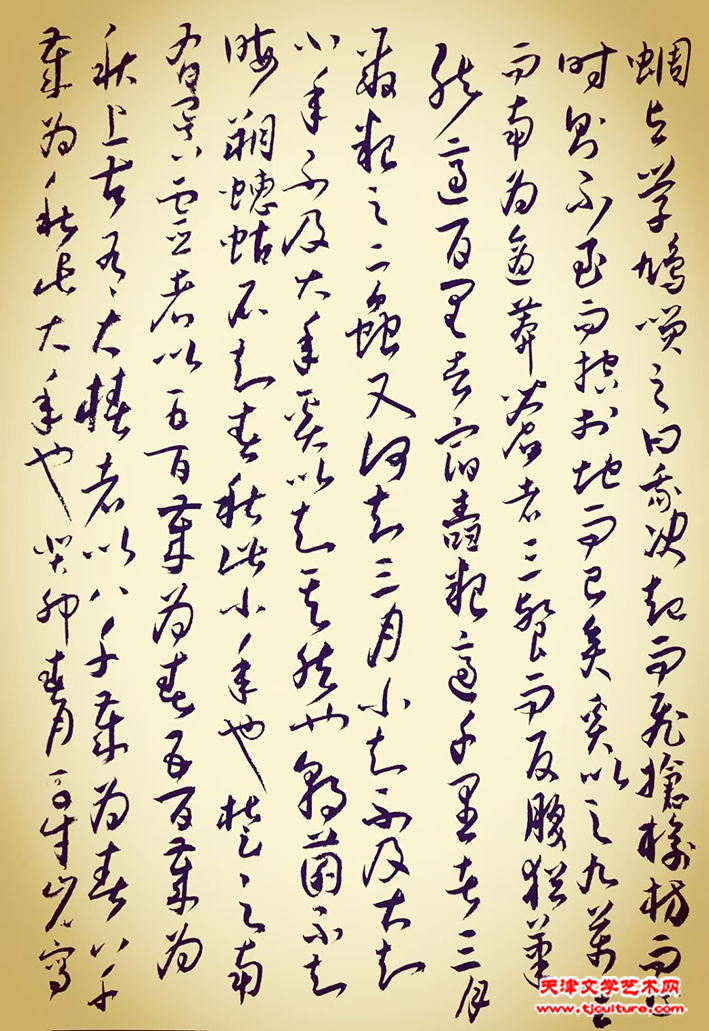 蜩与学鸠咲之曰我决起而飛搶榆枋而止
时则不至而控於地而已矣奚以之九萬里
而南为適莽蒼者三飡而反腹猶
然適百里者宿舂粮適千里者三月
聚粮之二蟲又何知三月小知不及大知
小年不及大年奚以知其然也朝菌不知
晦朔蟪蛄不知春秋此小年也楚之南
有冥靈者以五百歲为春五百歲为
秋上古有大椿者以八千歲为春八千
歲为秋此大年也癸卯春月寫
天津文学艺术网
www.tjculture.com